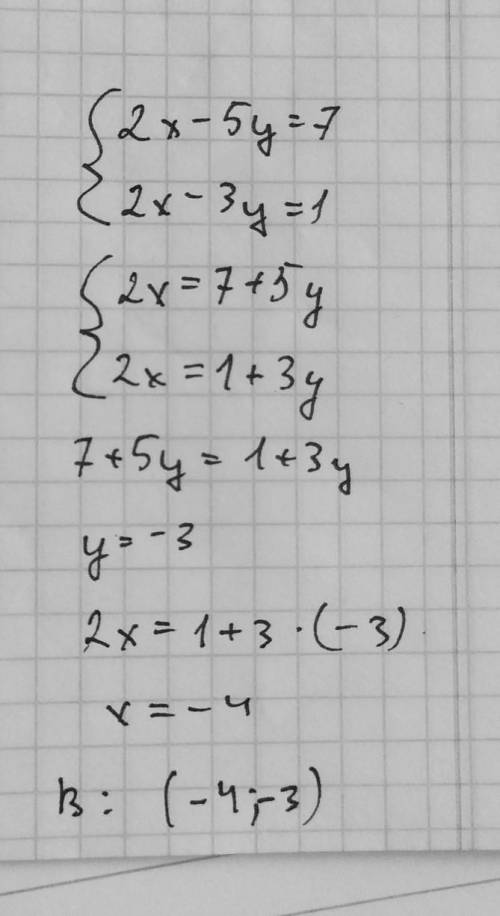 2x - 5y = 7
2x - 3y = 1
2x = 7 + 5y
2x = 1 + 3y
7 + 5y = 1 + 3y
y = -3
2x = 1 + 3 · (-3)
x = -4
В: (-4; -3)